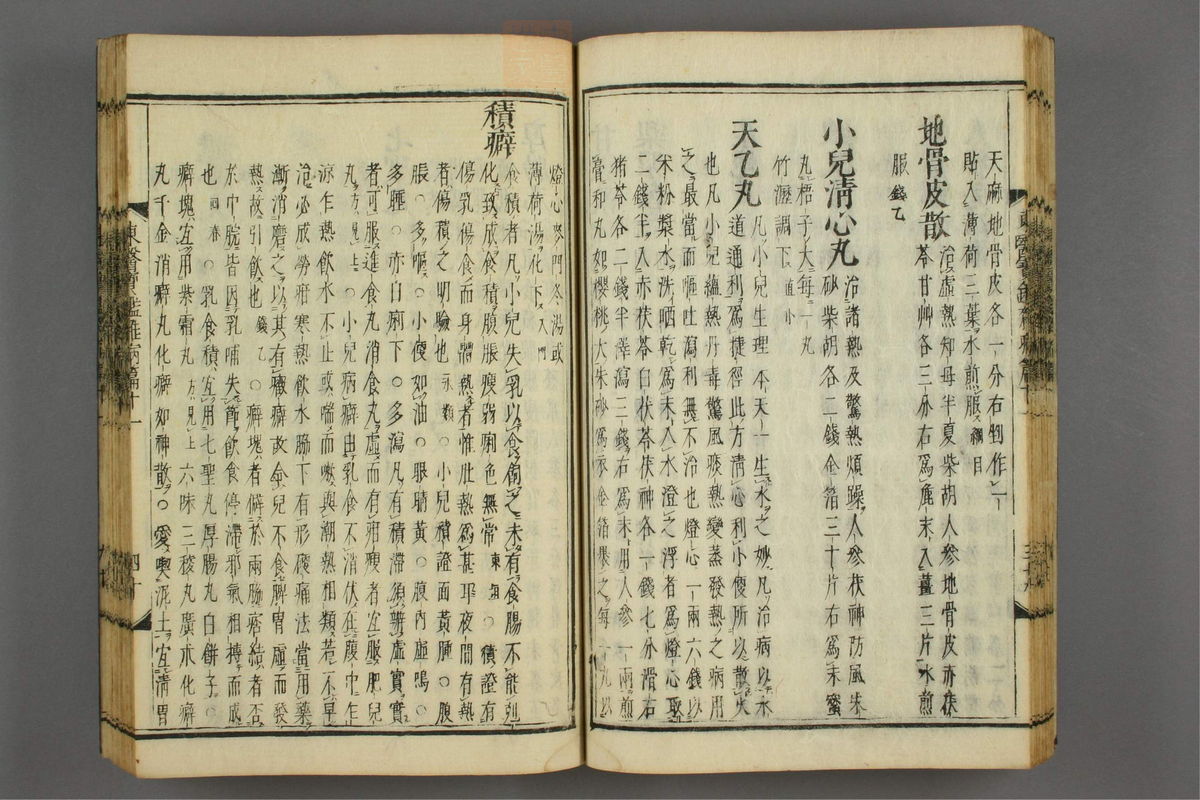 天麻地骨皮各一分右剉作一
貼入薄荷三葉水煎服 綱目
地骨皮散 治虛熱知母半夏柴胡人參地骨皮赤茯
苓甘艸各三分右爲麁末入薑三片水煎
服 錢乙
小兒淸心丸 治諸熱及驚熱煩躁人參茯神防風朱
砂柴胡各二錢金箔三十片右爲末蜜
丸梧子大每一丸
竹瀝調下 直小
天乙丸 凡小兒生理本天一生水之妙凡治病以水
道通利爲捷徑此方淸心利小便所以散火
也凡小兒蘊熱丹毒驚風痰熱變蒸發熱之病用
之最當而嘔吐瀉利無不治也燈心一兩六錢以
米粉漿水洗晒乾爲末入水澄之浮者爲燈心取
二錢半入赤茯苓白茯苓茯神各一錢七分滑石
猪苓各二錢半澤瀉三錢右爲末用人參一兩煎
膏和丸如櫻桃大朱砂爲衣金箔裹之每一丸以
燈心麥門冬湯或
薄荷湯化下 入門
積癖 食積者凡小兒失乳以食飼之未有食腸不能剋
化致成食積腹脹瘦弱痢色無常 東垣 ○積證有
傷乳傷食而身體熱者惟肚熱爲甚耳夜間有熱
者傷積之明驗也 類 ○小兒積證面黃腫○腹
脹○多嘔○小便如油○眼睛黃○腹內虛鳴○
多睡○赤白痢下○多瀉凡有積滯須辨虛實實
者可服進食丸消食丸虛而有疳瘦者宜服肥兒
丸 方見上 ○小兒病癖由乳食不消伏在腹中乍
涼乍熱飮水不止或喘而嗽與潮熱相類若不早
治必成勞疳寒熱飮水脇下有形硬痛法當用藥
漸消磨之以其有癥癖故令兒不食脾胃虛而發
熱故引飮也 錢乙 ○癖塊者僻於兩脇痞結者否
於中脘皆因乳哺失節飮食停滯邪氣相搏而成
也 回春 ○乳食積宜用七聖丸厚腸丸白餠子○
癖塊宜用紫霜丸 方見上 六味三稜丸廣朮化癖
丸千金消癖丸化癖如神散○愛喫泥土宜淸胃
東醫寶鑑雜病篇十一